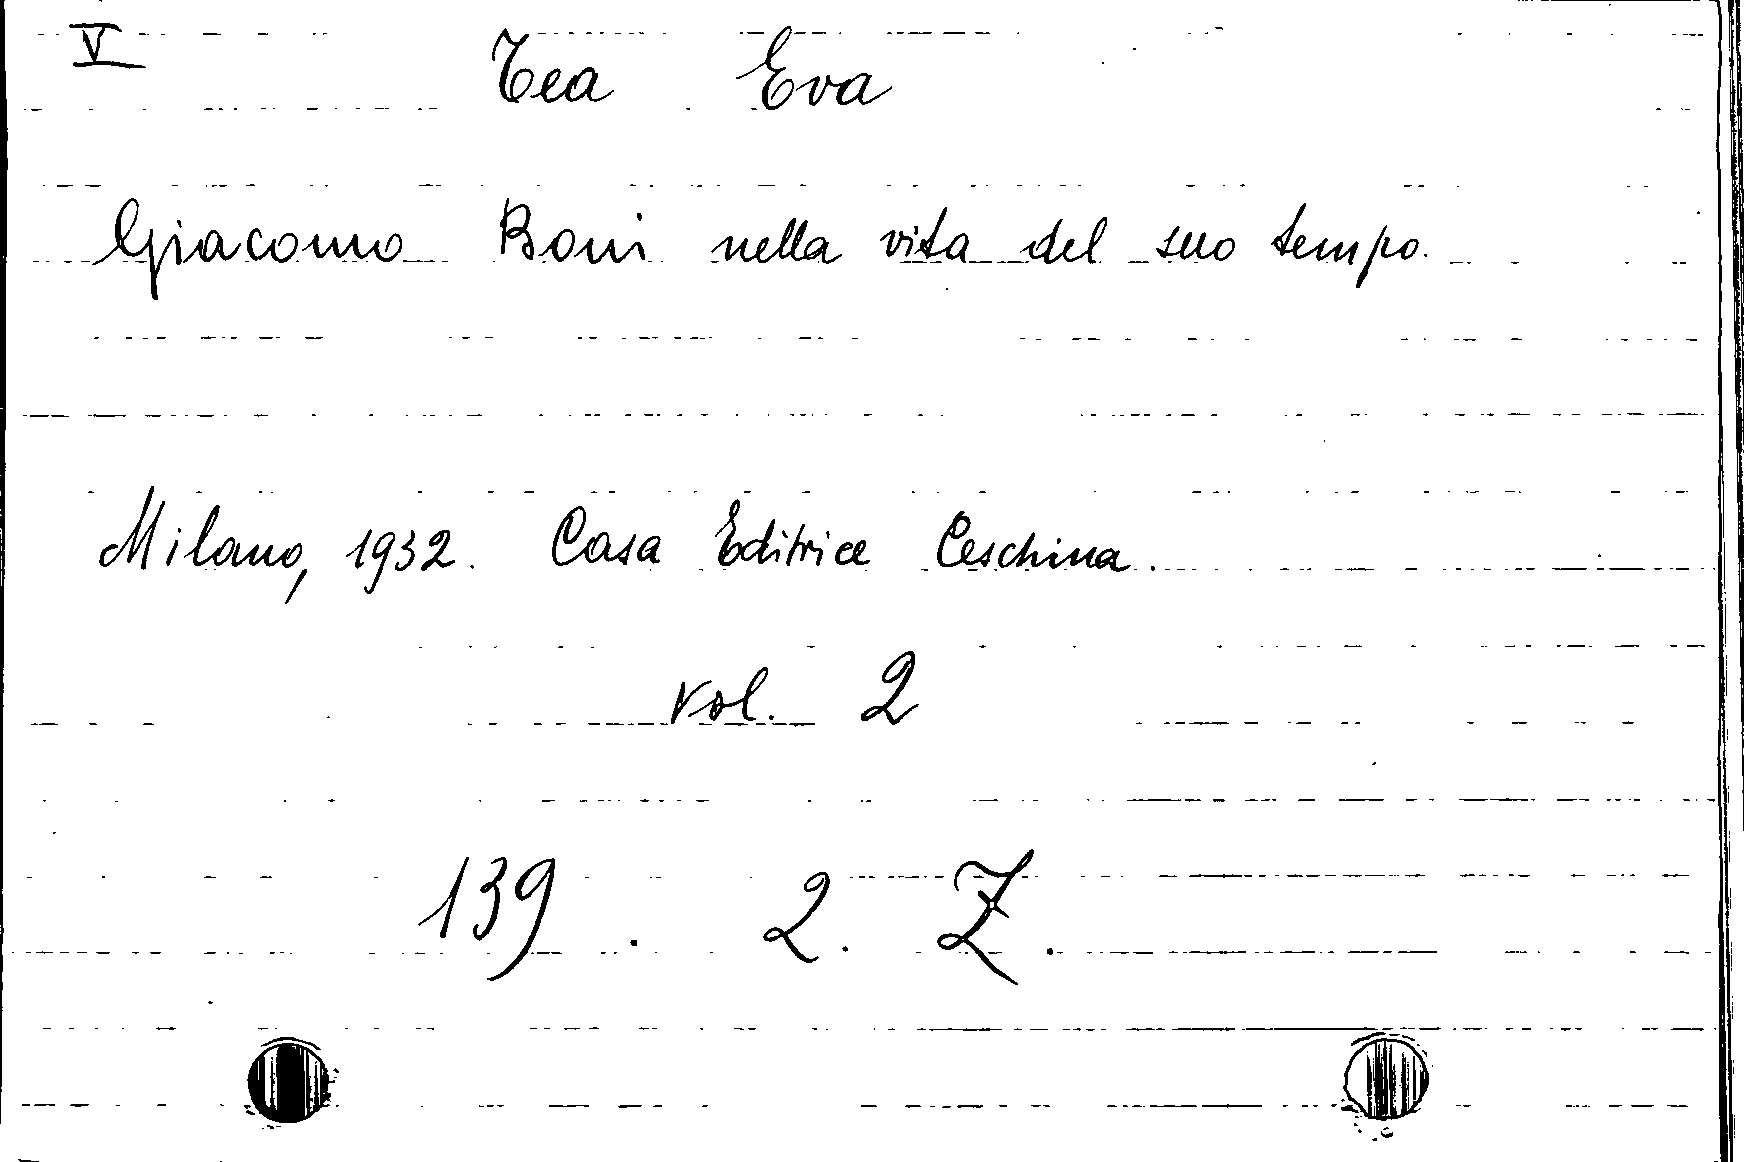 V
Tea Eva
Giacomo Boni nella vita del suo tempo.
Milano, 1932. Casa Editrice Ceschina.
vol. 2
139. 2. Z.